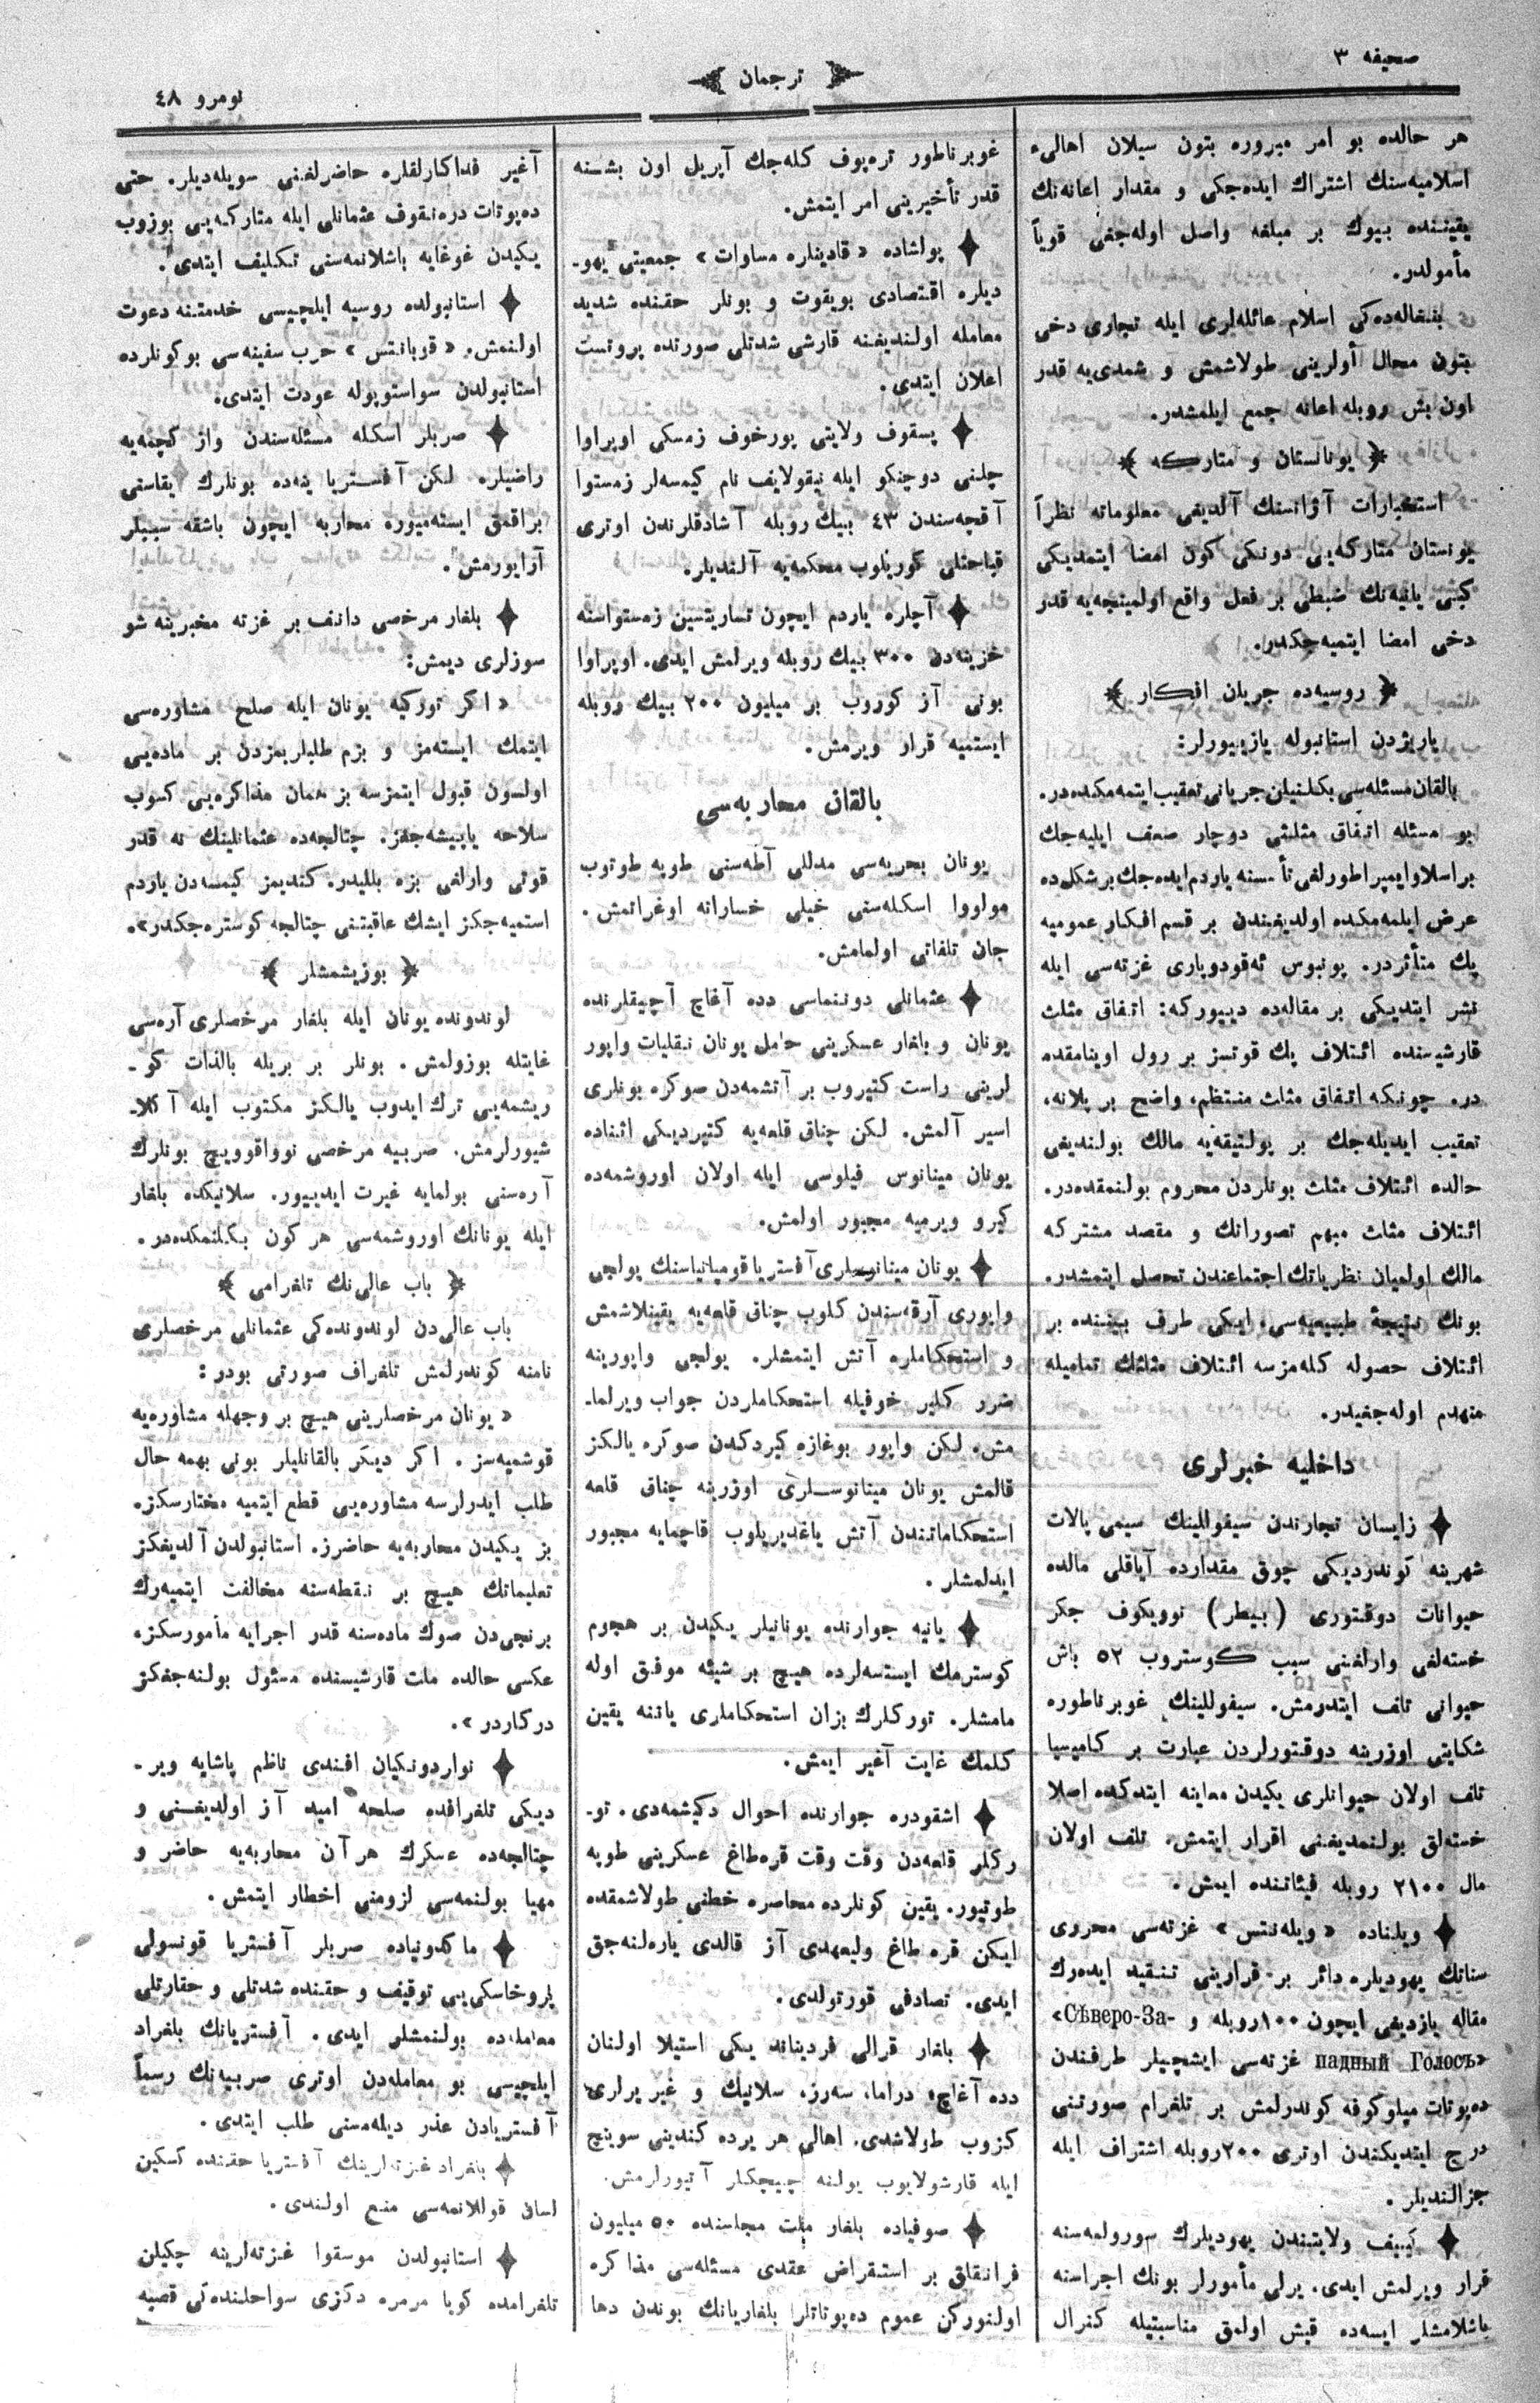 صحیفه ٣
ترجمان
نومرو ٤٨
هر حالده بو امر مبروره بتون سیلان اهالیء
اسلامیه‌سنك اشتراك ایده‌جكی و مقدار اعانه‌نك
یقیننده بیوك بر مبلغه واصل اوله‌جغی قویاً
مأمولدر.
بنغاله‌ده‌كی اسلام عائله‌لری ایله تجاری دخی
بتون محال أولرینی طولاشمش و شمدی‌یه قدر
اون بش روبله اعانه جمع ایلمشدر.
﴿ یونانستان و متاركه ﴾
استخبارات آژانسنك آلدیغی معلوماته نظراً
یونستان متاركه‌یی دونكی كون امضا ایتمدیكی
كبی یانیه‌نك ضبطی بر فعل واقع اولمینجه‌یه قدر
دخی امضا ایتمیه‌جكدر.
﴿ روسیه‌ده جریان افكار ﴾
پاریژدن استانبوله یازییورلر:
بالقان مسئله‌سی بكلنیلن جریانی تعقیب ایتمه‌مكده‌در.
بو مسئله اتفاق مثلثی دوچار ضعف ایلیه‌جك
براسلاو ایمپراطورلغی تأسسنه یاردم ایده‌جك برشكل‌ده
عرض ایلمه‌مكده اولدیغندن بر قسم افكار عمومیه
پك متأثردر. یونیوس ئه‌قودوپاری غزته‌سی ایله
نشر ایتدیكی بر مقاله‌ده دییوركه: اتفاق مثلث
قارشیسنده ائتلاف پك قوتسز بر رول اوینامقده
در. چونكه اتفاق مثلث منتظم، واضح بر پلانه،
تعقیب ایدیله‌جك بر پولتیقه‌یه مالك بولندیغی
حالده ائتلاف مثلث بونلردن محروم بولنمقده‌در.
ائتلاف مثلث مبهم تصوراتك و مقصد مشتركه
مالك اولمیان نظریاتك اجتماعندن تحصل ایتمشدر.
بونك نتیجهٔ طبیعیه‌سی، ایكی طرف بیننده بر
ائتلاف حصوله كله‌مزسه ائتلاف مثلثك تمامیله
منهدم اوله‌جغیدر.
داخلیه خبرلری
زایسان تجارندن سیفوللینك سیمی پالات
شهرینه كوندردیكی چوق مقدارده آیاقلی مالده
حیوانات دوقتوری (بیطر) نوویكوف جكر
خسته‌لغی وارلغنی سبب كوستروب ٥٢ باش
حیوانی تلف ایتدرمش. سیفوللینك غوبرناطوره
شكایتی اوزرینه دوقتورلردن عبارت بر كامیسیا
تلف اولان حیوانلری یكیدن معاینه ایتدكده اصلا
خسته‌لق بولنمدیغنی اقرار ایتمش. تلف اولان
مال ٢١٠٠ روبله فیئاتنده ایمش.
ویلناده « ویله‌نتس » غزته‌سی محرری
سناتك یهودیلره دائر بر قرارینی تنقید ایده‌رك
مقاله یازدیغی ایچون ١٠٠ روبله و «Сѣверо-За-
падный Голосъ» غزته‌سی ایشچیلر طرفندن
ده‌پوتات میلوكوفه كوندرلمش بر تلغرام صورتنی
درج ایتدیكندن اوتری ٢٠٠ روبله اشتراف ایله
جزالندیلر.
كییف ولایتندن یهودیلرك سورولمه‌سنه
قرار ویرلمش ایدی. یرلی مأمورلر بونك اجراسنه
باشلامشلر ایسه‌ده قیش اولمق مناسبتیله كنرال
غوبرناطور تره‌پوف كله‌جك آپریل اون بشنه
قدر تأخیرینی امر ایتمش.
پولشاده « قادینلره مساوات » جمعیتی یهو-
دیلره اقتصادی بویقوت و بونلر حقنده شدید
معامله اولندیغنه قارشی شدتلی صورتده پروتست
اعلان ایتدی.
پسقوف ولایتی پورخوف زمسكی اوپراوا
چلنی دوچنكو ایله نیقولایف نام كیمسه‌لر زمستوا
آقچه‌سندن ٤٣ بیك روبله آشادقلرندن اوتری
قباحتلی كوریلوب محكمه‌یه آلندیلر.
آچلره یاردم ایچون تساریتسین زمستواسنه
خزینه‌دن ٣٠٠ بیك روبله ویرلمش ایدی. اوپراوا
بونی آز كوروب بر میلیون ٢٠٠ بیك روبله
ایستمیه قرار ویرمش.
بالقان محاربه‌سی
یونان بحریه‌سی مدللی آطه‌سنی طوپه طوتوب
مولووا اسكله‌سنی خیلی خساراته اوغراتمش.
جان تلفاتی اولمامش.
عثمانلی دوننماسی دده آغاچ آچیقلرنده
یونان و بلغار عسكرینی حامل یونان نقلیات واپور
لرینی راست كتیروب بر آتشمه‌دن صوكره بونلری
اسیر آلمش. لكن چناق قلعه‌یه كتیردیكی اثناده
یونان مینانوس فیلوسی ایله اولان اوروشمه‌ده
كیرو ویرمیه مجبور اولمش.
یونان مینانوسلری آفستریا قومپانیاسنك یولجی
واپوری آرقه‌سندن كلوب چناق قلعه‌یه یقینلاشمش
و استحكاملره آتش ایتمشلر. یولجی واپورینه
ضرر كلیر خوفیله استحكاملردن جواب ویرلما-
مش. لكن واپور بوغازه كیردكدن صوكره یالكز
قالمش یونان مینانوسلری اوزرینه چناق قلعه
استحكاماتندن آتش یاغدیریلوب قاچمایه مجبور
ایدلمشلر.
یانیه جوارنده یونانیلر یكیدن بر هجوم
كوسترمك ایستسه‌لرده هیچ بر شیئه موفق اوله
مامشلر. توركلرك بزان استحكاملری یاننه یقین
كلمك غایت آغیر ایمش.
اشقودره جوارنده احوال دكیشمه‌دی. تو-
ركلر قلعه‌دن وقت وقت قره‌طاغ عسكرینی طوپه
طوتیور. یقین كونلرده محاصره خطنی طولاشمقده
ایكن قره طاغ ولیعهدی آز قالدی یاره‌لنه‌جق
ایدی. تصادفی قورتولدی.
بلغار قرالی فردیناند یكی استیلا اولنان
دده آغاچ، دراما، سه‌رز، سلانیك و غیر یرلری
كزوب طولاشدی. اهالی هر یرده كندینی سوینچ
ایله قارشولایوب یولنه چیچكلر آتیورلرمش.
صوفیاده بلغار ملت مجلسنده ٥٠ میلیون
فرانقلق بر استقراض عقدی مسئله‌سی مذاكره
اولنوركن عموم ده‌پوتاتلر بلغاریانك بوندن دها
آغیر فداكارلقلره حاضرلغنی سویله‌دیلر. حتی
ده‌پوتات دره‌نقوف عثمانلی ایله متاركه‌یی بوزوب
یكیدن غوغایه باشلانمه‌سنی تكلیف ایتدی.
استانبولده روسیه ایلچیسی خدمتنه دعوت
اولنمش. « قوبانتس » حرب سفینه‌سی بوكونلرده
استانبولدن سواستوپوله عودت ایتدی.
صربلر اسكله مسئله‌سندن واز كچمه‌یه
راضیلر. لكن آفستریا ینه‌ده بونلرك یقاسنی
براقمق ایسته‌میور. محاربه ایچون باشقه سببلر
آرایورمش.
بلغار مرخصی دانف بر غزته مخبرینه شو
سوزلری دیمش:
« اكر توركیه یونان ایله صلح مشاوره‌سی
ایتمك ایسته‌مز و بزم طلبلریمزدن بر ماده‌یی
اولسون قبول ایتمزسه بز همان مذاكره‌یی كسوب
سلاحه یاپیشه‌جغز. چتالجه‌ده عثمانلینك نه قدر
قوتی وارلغی بزه بللیدر. كندیمز كیمسه‌دن یاردم
استمیه‌جكز ایشك عاقبتنی چتالجه كوستره‌جكدر».
﴿ بوزیشمشلر ﴾
لوندونده یونان ایله بلغار مرخصلری آره‌سی
غایتله بوزولمش. بونلر بر بریله بالذات كو-
ریشمه‌یی ترك ایدوب یالكز مكتوب ایله آكلا-
شیورلرمش. صربیه مرخصی نوواقوویچ بونلرك
آره‌سنی بولمایه غیرت ایدییور. سلانیكده بلغار
ایله یونانك اوروشمه‌سی هر كون بكلنمكده‌در.
﴿ باب عالی‌نك تلغرامی ﴾
باب عالی‌دن لوندونده‌كی عثمانلی مرخصلری
نامنه كوندرلمش تلغراف صورتی بودر:
« یونان مرخصلرینی هیچ بر وجهله مشاوره‌یه
قوشمیه‌سز. اكر دیكر بالقانلیلر بونی بهمه حال
طلب ایدرلرسه مشاوره‌یی قطع ایتمیه مختارسكز.
بز یكیدن محاربه‌یه حاضرز. استانبولدن آلدیغكز
تعلیماتك هیچ بر نقطه‌سنه مخالفت ایتمیه‌رك
برنجی‌دن صوك ماده‌سنه قدر اجرایه مأمورسكز.
عكسی حالده ملت قارشیسنده مسئول بولنه‌جغكز
دركاردر ».
نواردونكیان افندی ناظم پاشایه ویر-
دیكی تلغرافده صلحه امید آز اولدیغنی و
چتالجه‌ده عسكرك هر آن محاربه‌یه حاضر و
مهیا بولنمه‌سی لزومنی اخطار ایتمش.
ماكدونیاده صربلر آفستریا قونسولی
پروخاسكی‌یی توقیف و حقنده شدتلی و حقارتلی
معامله‌ده بولنمشلر ایدی. آفستریانك بلغراد
ایلچیسی بو معامله‌دن اوتری صربیه‌نك رسماً
آفستریادن عذر دیله‌مسنی طلب ایتدی.
بلغراد غزته‌لرینك آفستریا حقنده كسكین
لسان قوللانمه‌سی منع اولندی.
استانبولدن موسقوا غزته‌لرینه چكیلن
تلغرامده كویا مرمره دكزی سواحلنده‌كی قصبه